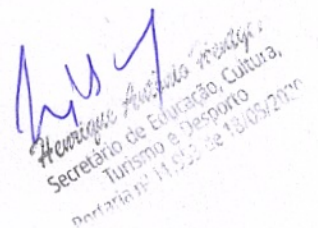 Henrique Antônio
Secretário de Educação, Cultura,
Turismo e Desporto
Portaria nº de 18/05/2020